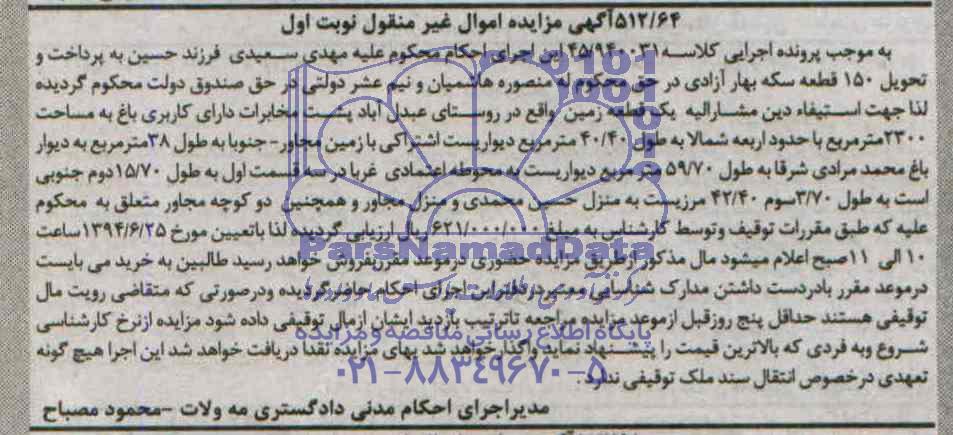 ۵۱۲/۶۴آگهی مزایده اموال غیر منقول نوبت اول
به موجب پرونده اجرایی کلاسه ۴۵/۹۴۰۰۳۱ این اجرای احکام محکوم علیه مهدی سعیدی فرزند حسین به پرداخت و
تحویل ۱۵۰ قطعه سکه بهار آزادی در حق محکوم له منصوره هاشمیان و نیم عشر دولتی در حق صندوق دولت محکوم گردیده
لذا جهت استیفاء دین مشارالیه یک قطعه زمین واقع در روستای عبدل آباد پشت مخابرات دارای کاربری باغ به مساحت
۲۳۰۰مترمربع با حدود اربعه شمالا به طول ۴۰/۴۰ مترمربع دیواریست اشتراکی با زمین مجاور- جنوبا به طول ۳۸مترمربع به دیوار
باغ محمد مرادی شرقا به طول ۵۹/۷۰ متر مربع دیواریست به محوطه اعتمادی غربا در سه قسمت اول به طول ۱۵/۷۰دوم جنوبی
است به طول ۳/۷۰سوم ۴۲/۴۰ مرزیست به منزل حسن محمدی و منزل مجاور و همچنین دو کوچه مجاور متعلق به محکوم
علیه که طبق مقررات توقیف وتوسط کارشناس به مبلغ ۶۲۱/۰۰۰/۰۰۰ ریال ارزیابی گردیده لذا باتعیین مورخ ۱۳۹۴/۶/۲۵ساعت
۱۰ الی ۱۱صبح اعلام میشود مال مذکور ازطریق مزایده حضوری درموعد مقرربفروش خواهد رسید طالبین به خرید می بایست
درموعد مقرر بادردست داشتن مدارک شناسایی معتبردردفتراین اجرای احکام حاضرگردیده ودرصورتی که متقاضی رویت مال
توقیفی هستند حداقل پنج روزقبل ازموعد مزایده مراجعه تاترتیب بازدید ایشان ازمال توقیفی داده شود مزایده ازنرخ کارشناسی
شروع وبه فردی که بالاترین قیمت را پیشنهاد نماید واگذار خواهد شد بهای مزایده نقدا دریافت خواهد شد این اجرا هیچ گونه
تعهدی درخصوص انتقال سند ملک توقیفی ندارد.
مدیراجرای احکام مدنی دادگستری مه ولات -محمود مصباح
ParsNamadData
پایگاه اطلاع رسانی مناقصه و مزایده
۰۲۱-۸۸۳۴۹۶۷۰-۵